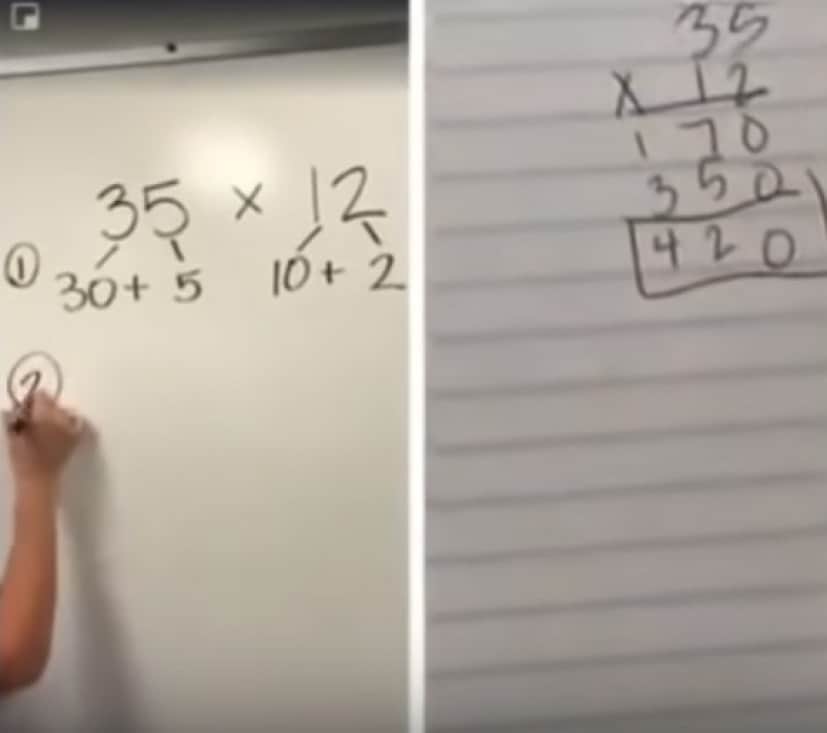 35 × 12
① 30+ 5 10+ 2
②
35
x 12
170
350
420